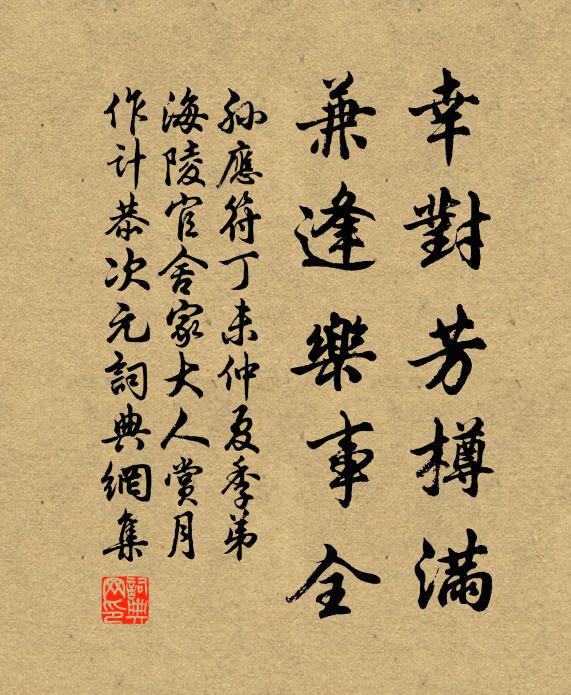 幸對芳樽滿
兼逢樂事全
孫應符丁未仲夏季弟
海陵官舍家大人賞月
作計恭次元詞典網集
詞典網印